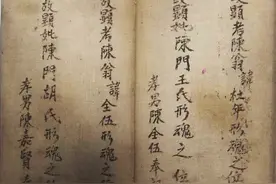 故顯考陳翁諱杜平形魂之位
故顯妣陳門王氏形魂之位
孝男陳全伍奉
故顯考陳翁諱全伍形魂之位
故顯妣陳門胡氏形魂之位
孝男陳嘉賢